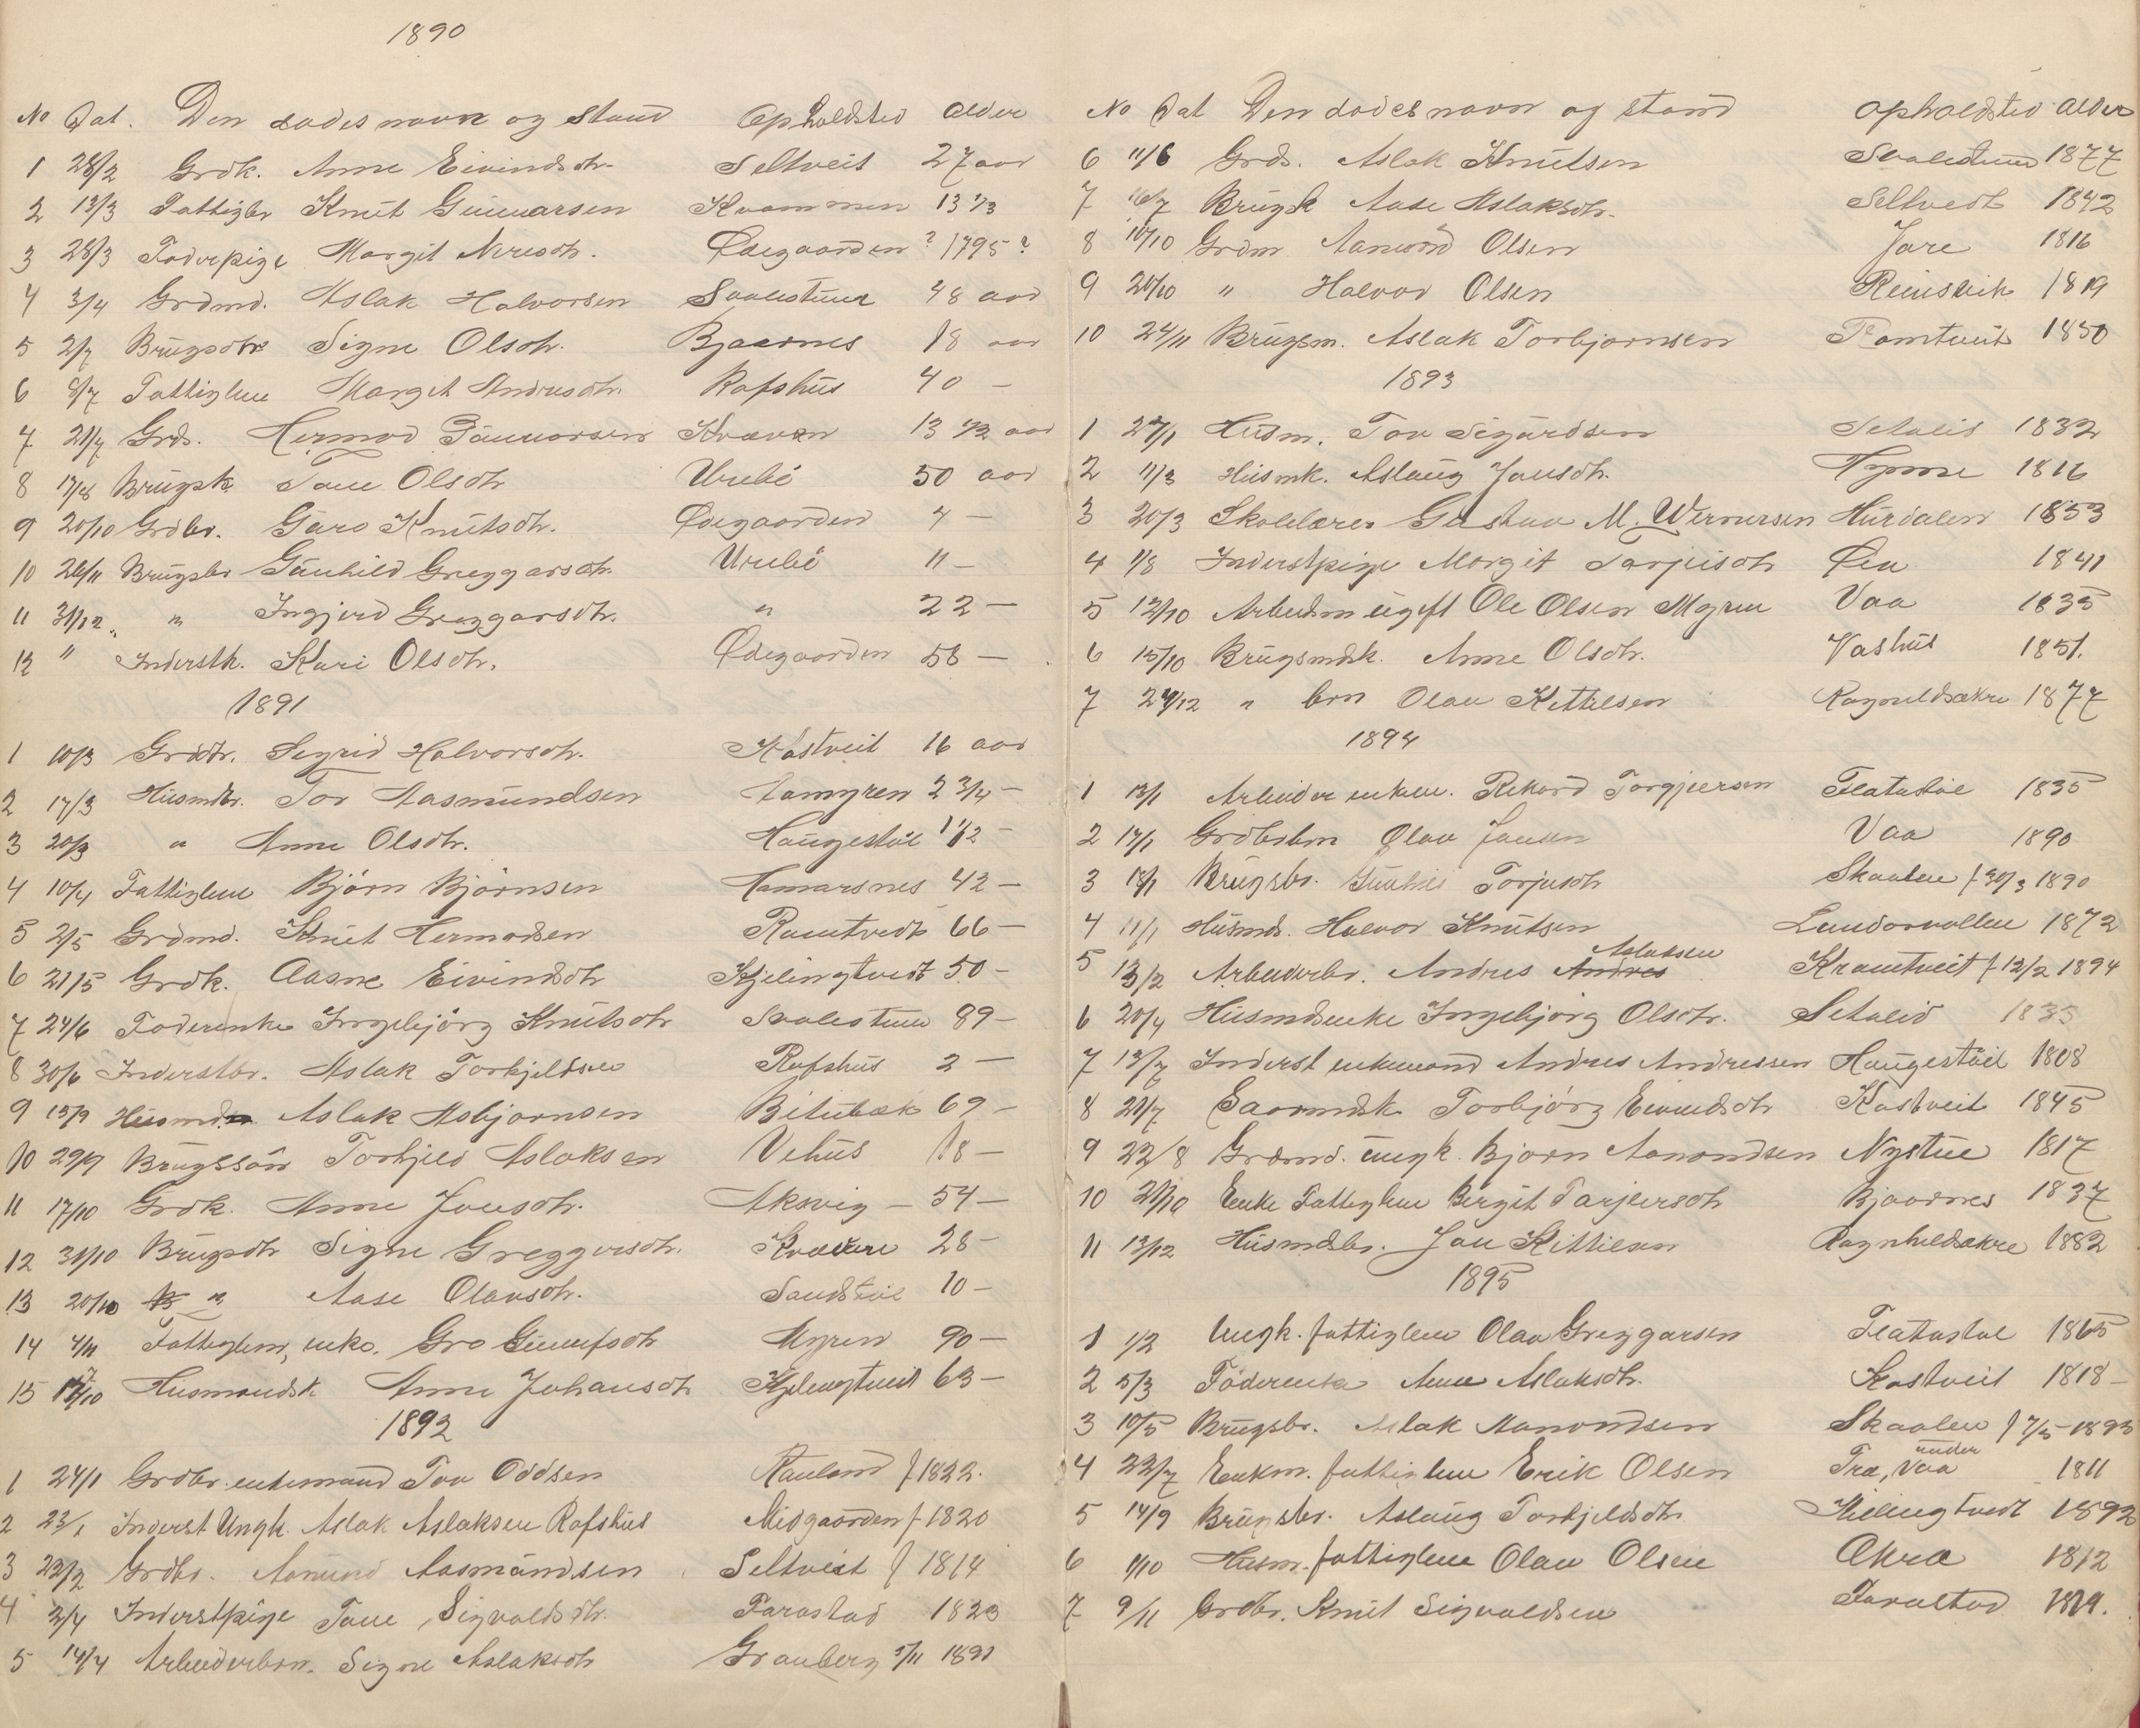 1890
No Dat. Den dødes navn og Stand Opholdsted alder
1 28/2 Grdk. Anne Eivindsdtr. Seltveit 27 aar
2 12/3 Fattigbr Knut Gunnarsen Kvammen 13 1/3
3 28/3 Foderpige Margit Nerisdtr. Ødegaarden ? 1795 ?
4 3/4 Grdmd. Aslak Halvorsen Svalestuen 48 aar
5 2/7 Brugsdtr Signe Olsdtr. Bjaarnes 18 aar
6 8/7 Fattiglem Margit Andresdtr. Rofshus 40 —
7 21/7 Grds. Hermod Gunnarsen Kvæven 13 1/2 aar
8 17/8 Brugsk. Tone Olsdtr Urebö 50 aar
9 20/10 Grdbr. Guro Knutsdtr. Ødegaarden 4 —
10 26/11 Brugsbr Gunhild Greggarsdtr. Urebö 11 —
11 31/12 " Ingjerd Greggarsdtr. " 22 —
12 " Inderstk. Kari Olsdtr. Ødegaarden 58 —
1891
1 10/3 Grddtr. Sigrid Halvorsdtr. Kostveit 16 aar
2 17/3 Husmdbr. Tor Aasmundsen Aamyren 2 3/4 —
3 20/3 " Anne Olsdtr. Haugestöil 1 1/2 —
4 10/4 Fattiglem Björn Björnsen Hamarsnes 42 —
5 2/5 Grdmd. Knut Hermodsen Romtvedt 66 —
6 21/5 Grdk. Aasne Eivindsdtr Kjelingtvedt 50 —
7 24/6 Foderenke Ingebjörg Knutsdtr Svalestuen 89 —
8 30/6 Inderstbr. Aslak Torkjeldsen Rofshus 2 —
9 15/9 Husmd. Aslak Asbjornsen Bitubæk 69 —
10 29/9 Brugssön Torkjeld Aslaksen Vehus 18 —
11 17/10 Grdk. Anne Jonsdtr. Aksvig — 54 —
12 31/10 Brugsdtr Signe Greggersdtr. Kvævne 28 —
13 20/10 " Aase Olavsdtr. Sandstöil 10 —
14 4/11 Fattiglem, enke. Gro Gunulfsdtr Myren 90 —
15 17/10 Husmandsk Anne Johansdtr Kjelingtveit 63 —
1892
1 24/1 Grdbr. enkemand Tov Oddsen Rauland f 1822.
2 23/1 Inderst Ungk. Aslak Aslaksen Rofshus Midgaarden f 1820
3 22/2 Grdbr. Aanund Aasmundsen Seltveit f 1814
4 3/4 Inderstpige Tone Sigvaldsdtr. Farastad 1823
5 14/4 Arbeiderbrn. Signe Aslaksdtr Granberg 5/11 1891
No Dat Den dødes navn og stand opholdsted alder
6 11/6 Grds. Aslak Knutsen Svalestuen 1877
7 16/7 Brugsk Aase Aslaksdtr. Seltvedt 1842
8 10/10 Grdm Aanund Olsen Jare 1816
9 20/10 " Halvor Olsen Reinsvik 1819
10 24/11 Brugsm. Aslak Torbjornsen Romtveit 1850
1893
1 27/1 Husm. Tov Sigurdsen Setaleid 1832
2 11/3 Husmk. Aslaug Jonsdtr. 1816
3 20/3 Skolelærer Gustav M. Wernersen Hurdalen 1853
4 1/8 Inderstpige Margit Tarjeisdtr Øen 1841
5 12/10 Arbeidm ugift Ole Olsen Myren Vaa 1835
6 15/10 Brugsmdsk. Anne Olsdtr. Vashus 1851.
7 24/12 " brn Olav Kittilsen Ragnildsækre 1877
1894
1 13/1 Arbeider enkem. Rikard Torgjersen Flatastöil 1835
2 17/1 Grdbrbrn Olav Jonsen Vaa 1890
3 18/1 Brugsbr. Gunhild Torjusdtr Skaalen f 30/3 1890
4 11/1 Husmds. Halvor Knutsen Landorvollen 1872
5 13/2 Arbeiderbr. Andres Andres Aslaksen Kramtveit f 12/2 1894
6 20/4 Husmdsenke Ingebjörg Olsdtr. Setaleid 1835
7 13/7 Inderst enkemand Andres Andressen Haugestöil 1808
8 21/7 Gaarmdsk Torbjörg Eivindsdtr Kostveit 1845
9 22/8 Grdmd. ungk. Bjorn Aanondsen Nystue 1817
10 21/10 Enke Fattiglem Bergit Tarjeisdtr Bjaarnes 1837
11 13/12 Husmdsbr. Jon Kittilsen Ragnhildsækre 1882
1895
1 1/2 Ungk. fattiglem Olav Greggarsen Flatastöl 1865
2 5/3 Föderenke Anne Aslaksdtr. Kostveit 1818 —
3 10/5 Brugsbr. Aslak Aanondsen Skaalen f 7/5 - 1893
4 22/7 Enkm. fattiglem Erik Olsen Træ, under Vaa 1811
5 14/9 Brugsbr. Aslaug Torkjeldsdtr. Kielingtvedt 1892
6 1/10 Husm. fattiglem Olav Olsen Akra 1812
7 9/11 Grdbr. Knut Sigvaldsen Farastad 1819.